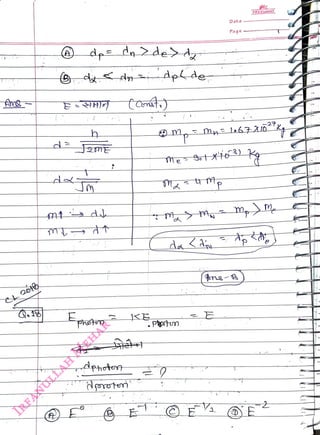 Date
Page
(A) dp = dn > de > d2
(B) d2 < dn = dp < de
Ans - E = समान (Const.)
d = h / √2mE
d ∝ 1 / √m
m↑ → d↓
m↓ → d↑
mp = mn = 1.67 × 10⁻²⁷ kg
me = 9.1 × 10⁻³¹ kg
mα = 4 mp
∵ mα > mn = mp > me
dα < dn = dp < de
Ans - B
Q.18 E photon = KE proton = E
d photon / d proton = ?
(A) E⁰ (B) E⁻¹ (C) E⁻¹/² (D) E⁻²
IRFANULLAH MEHAR